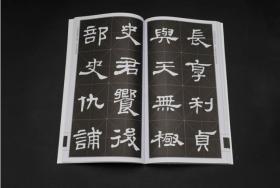 長享利貞
與天無極
史君饗後
部史仇誧